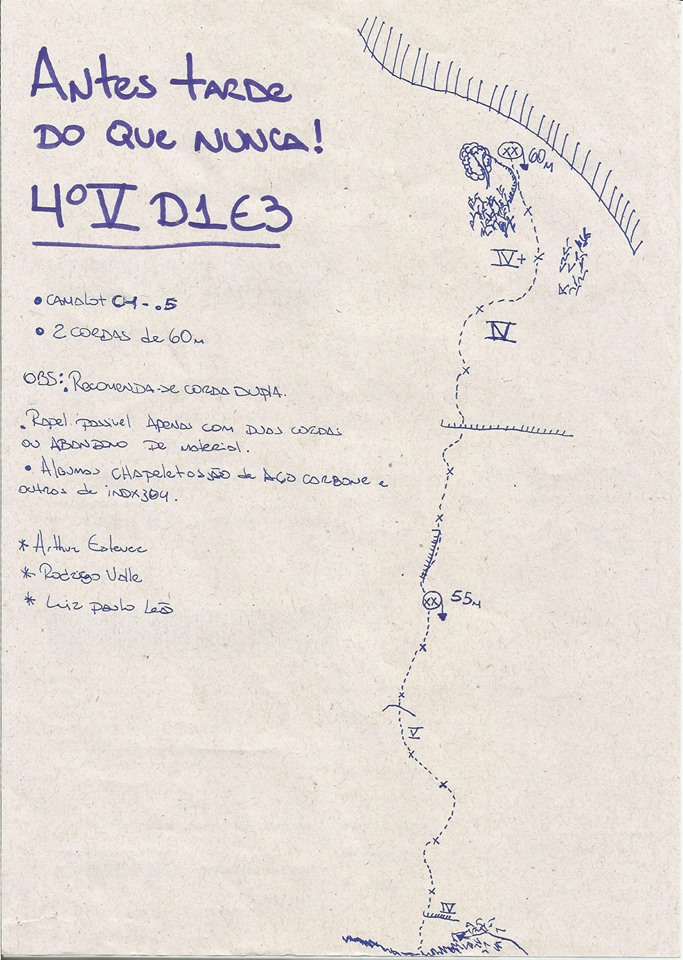 Antes tarde
do que nunca!
4º V D1 E3
• Camalot C4 - .5
• 2 cordas de 60m
OBS: Recomenda-se corda dupla.
• Rapel possivel apenas com duas cordas
ou abandono de material.
• Algumas chapeletas são de aço carbono e
outras de inox 304.
* Arthur Esteves
* Rodrigo Valle
* Luiz Paulo Leão
XX 60m
IV+
IV
XX 55m
V
IV